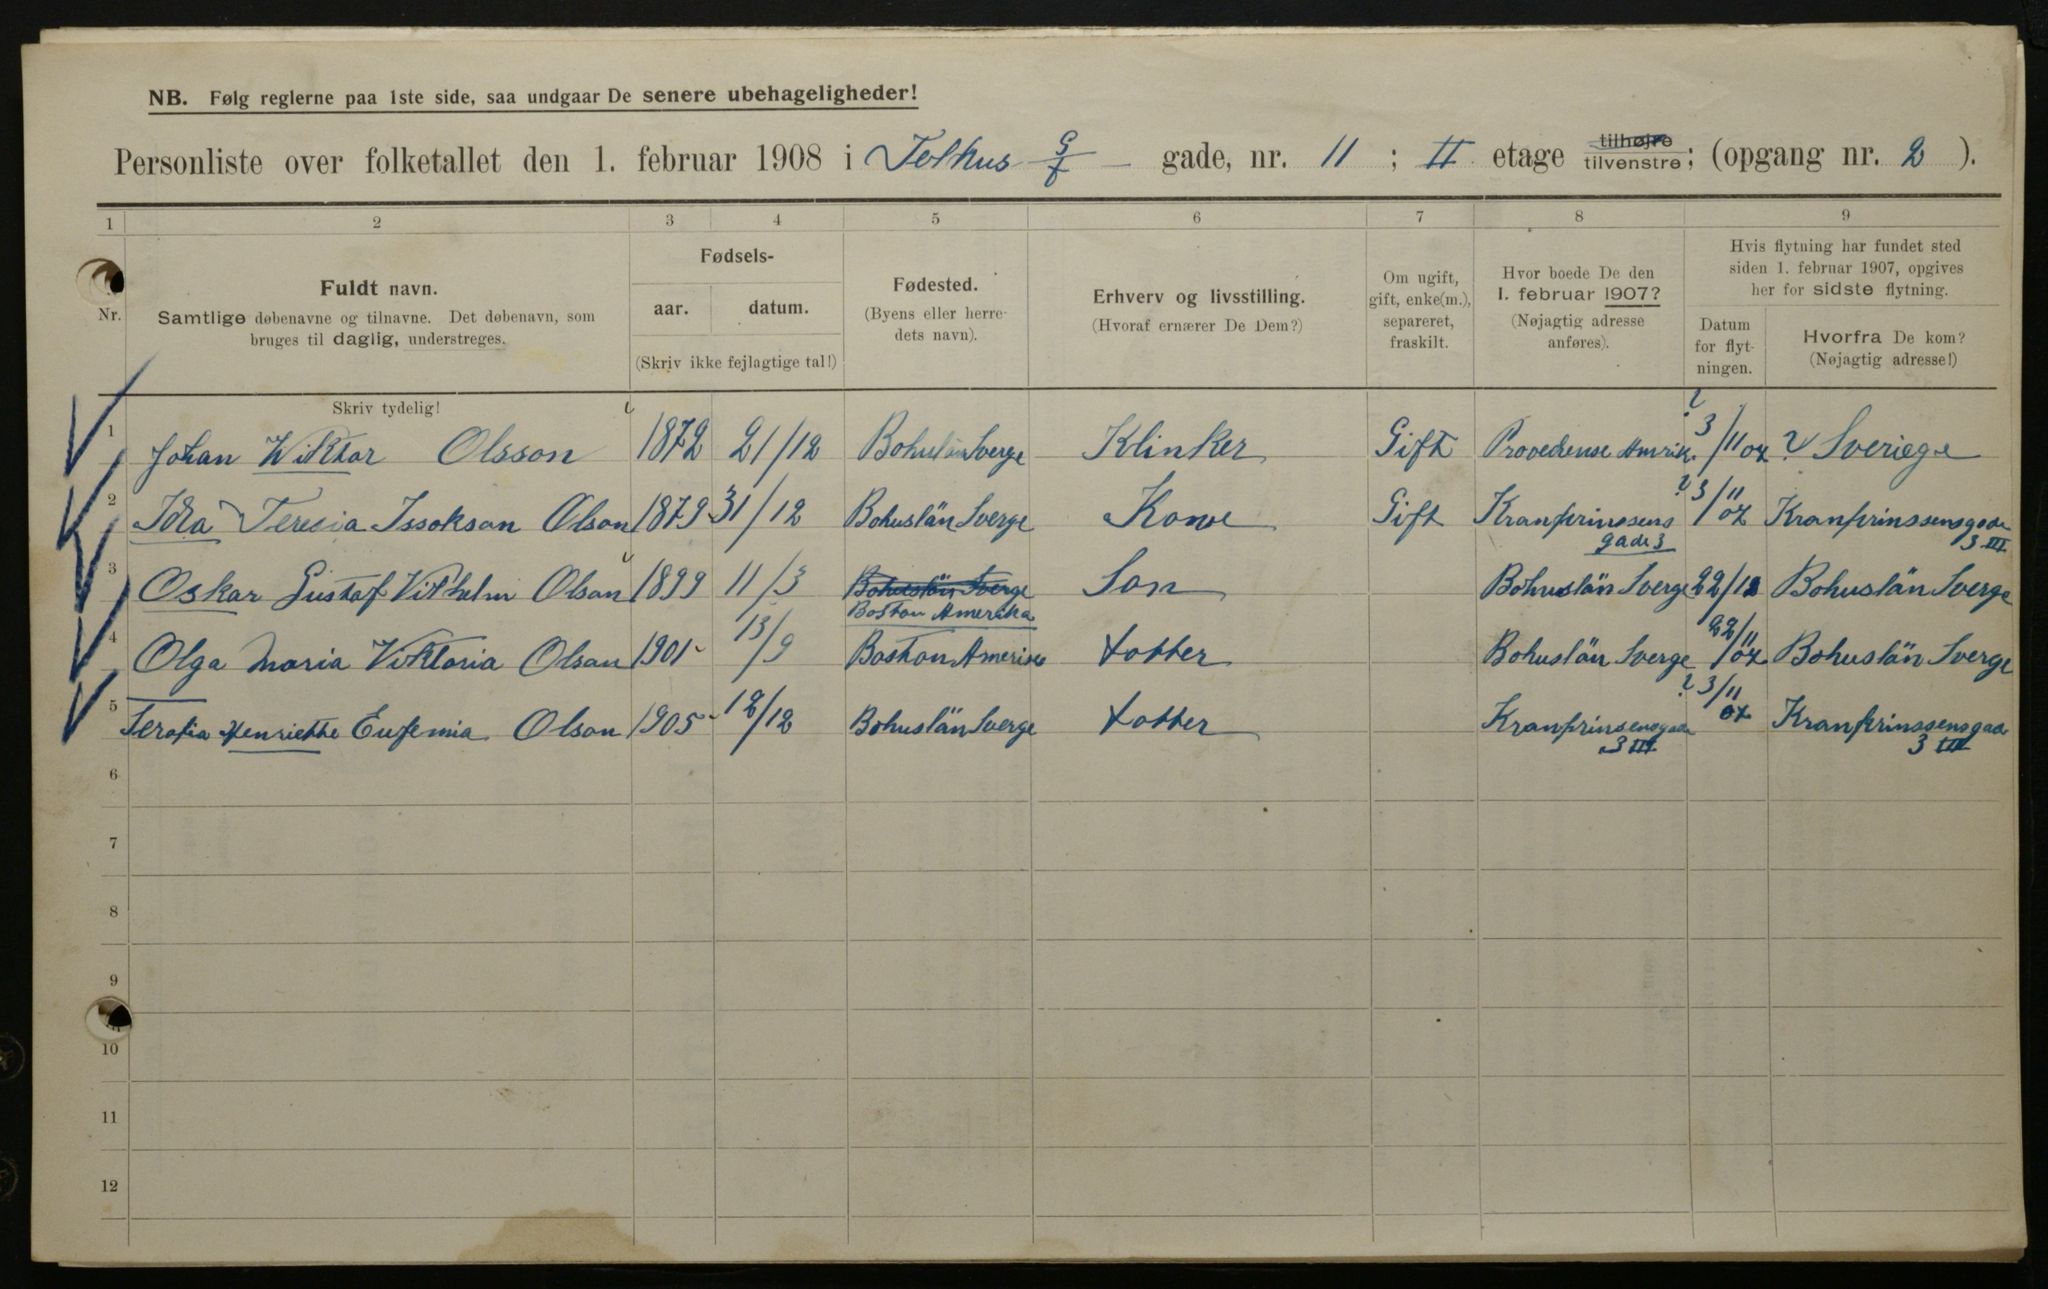 NB. Følg reglerne paa 1ste side, saa undgaar De senere ubehageligheder!
Personliste over folketallet den 1. februar 1908 i Tolkus G/f gade, nr. 11 ; II etage tilhøjre tilvenstre; (opgang nr. 2 ).
1 2 3 4 5 6 7 8 9
Nr.
Fuldt navn.
Samtlige døbenavne og tilnavne. Det døbenavn, som
bruges til daglig, understreges.
Skriv tydelig!
Fødsels-
aar. datum.
(Skriv ikke fejlagtige tal!)
Fødested.
(Byens eller herre-
dets navn).
Erhverv og livsstilling.
(Hvoraf ernærer De Dem?)
Om ugift,
gift, enke(m.),
separeret,
fraskilt.
Hvor boede De den
1. februar 1907?
(Nøjagtig adresse
anføres).
Hvis flytning har fundet sted
siden 1. februar 1907, opgives
her for sidste flytning.
Datum
for flyt-
ningen.
Hvorfra De kom?
(Nøjagtig adresse!)
1 Johan Wiktor Olsson 1872 21/12 Bohuslän Sverge Klinker Gift Provedense Amrik. ? 3/11 07 ? Sveriege
2 Ida Teresia Issokson Olson 1879 31/12 Bohuslän Sverge Kone Gift Kranprinssens gade 3 ? 3/11 07 Kranprinssensgade 3 III
3 Oskar Gustaf Vilhelm Olson 1899 11/3 Bohuslän Sverge Boston Amerika Son Bohuslän Sverge 22/12 Bohuslän Sverge
4 Olga Maria Viktoria Olson 1901 13/9 Boston Amerika totter Bohuslän Sverge 22/11 07 Bohuslän Sverge
5 Serafia Henriette Eufemia Olson 1905 12/12 Bohuslän Sverge totter Kranprinsensgade 3 III ? 3/11 07 Kranprinssensgade 3 III
6
7
8
9
10
11
12